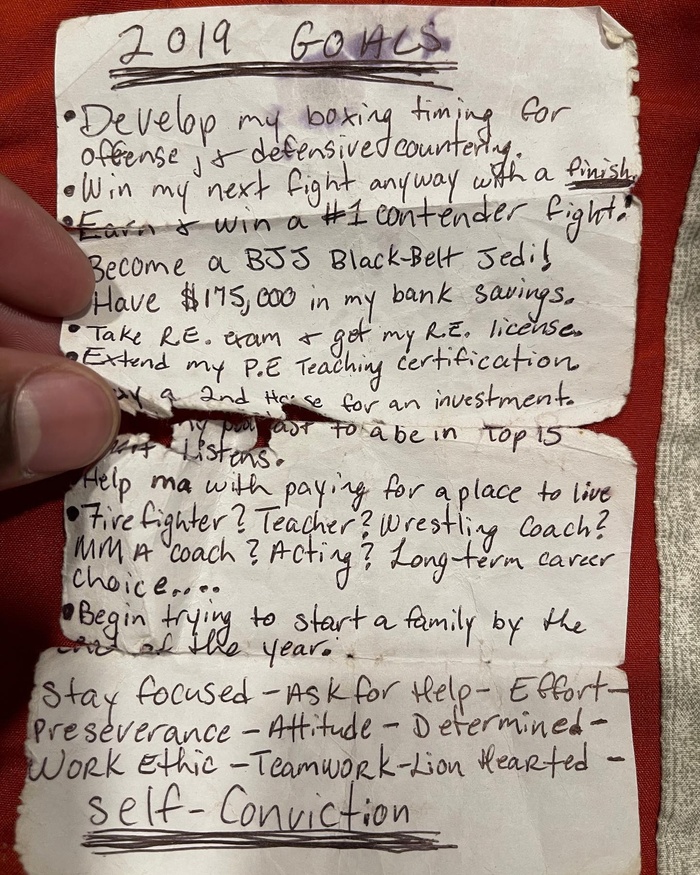 2019 GOALS
• Develop my boxing timing for
offense, & defensive countering.
• Win my next fight anyway with a finish.
• Earn & win a #1 contender fight!
Become a BJJ Black-Belt Jedi!
Have $175,000 in my bank savings.
• Take R.E. exam & get my R.E. license.
• Extend my P.E Teaching certification.
a 2nd House for an investment.
my to a be in Top 15
Listens.
Help ma with paying for a place to live
• Firefighter? Teacher? Wrestling Coach?
MMA coach? Acting? Long-term career
choice....
• Begin trying to start a family by the
end of the year.
Stay focused - Ask for Help - Effort -
Preseverance - Attitude - Determined -
Work Ethic - Teamwork - Lion Hearted -
Self-Conviction